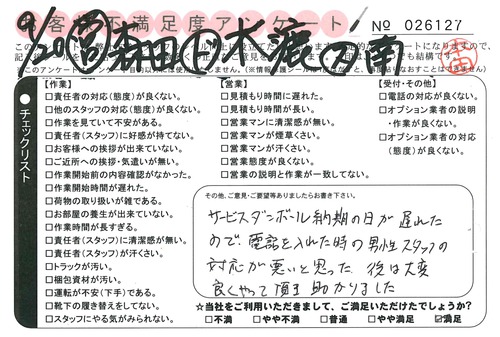 お客様不満足度アンケート
No 026127
9/20
チェックリスト
【作業】
□責任者の対応(態度)が良くない。
□他のスタッフの対応(態度)が良くない。
□作業を見ていて不安がある。
□責任者(スタッフ)に好感が持てない。
□お客様への挨拶が出来ていない。
□ご近所への挨拶・気遣いが無い。
□作業開始前の内容確認がなかった。
□作業開始時間が遅れた。
□荷物の取り扱いが雑である。
□お部屋の養生が出来ていない。
□作業時間が長すぎる。
□責任者(スタッフ)に清潔感が無い。
□責任者(スタッフ)が汗くさい。
□トラックが汚い。
□梱包資材が汚い。
□運転が不安(下手)である。
□靴下の履き替えをしてない。
□スタッフにやる気がみられない。
【営業】
□見積もり時間に遅れた。
□見積もり時間が長い。
□営業マンに清潔感が無い。
□営業マンが煙草くさい。
□営業マンが汗くさい。
□営業態度が良くない。
□営業の説明と作業が一致してない。
【受付・その他】
□電話の対応が良くない。
□オプション業者の説明
・作業が良くない。
□オプション業者の対応
(態度)が良くない。
その他、ご意見・ご要望等ありましたらお書き下さい。
サービスダンボール納期の日が遅れた
ので電話を入れた時の男性スタッフの
対応が悪いと思った 後は大変
良くやって頂き助かりました
★当社をご利用いただきまして、ご満足いただけたでしょうか?
□不満 □やや不満 □普通 □やや満足 ☑満足